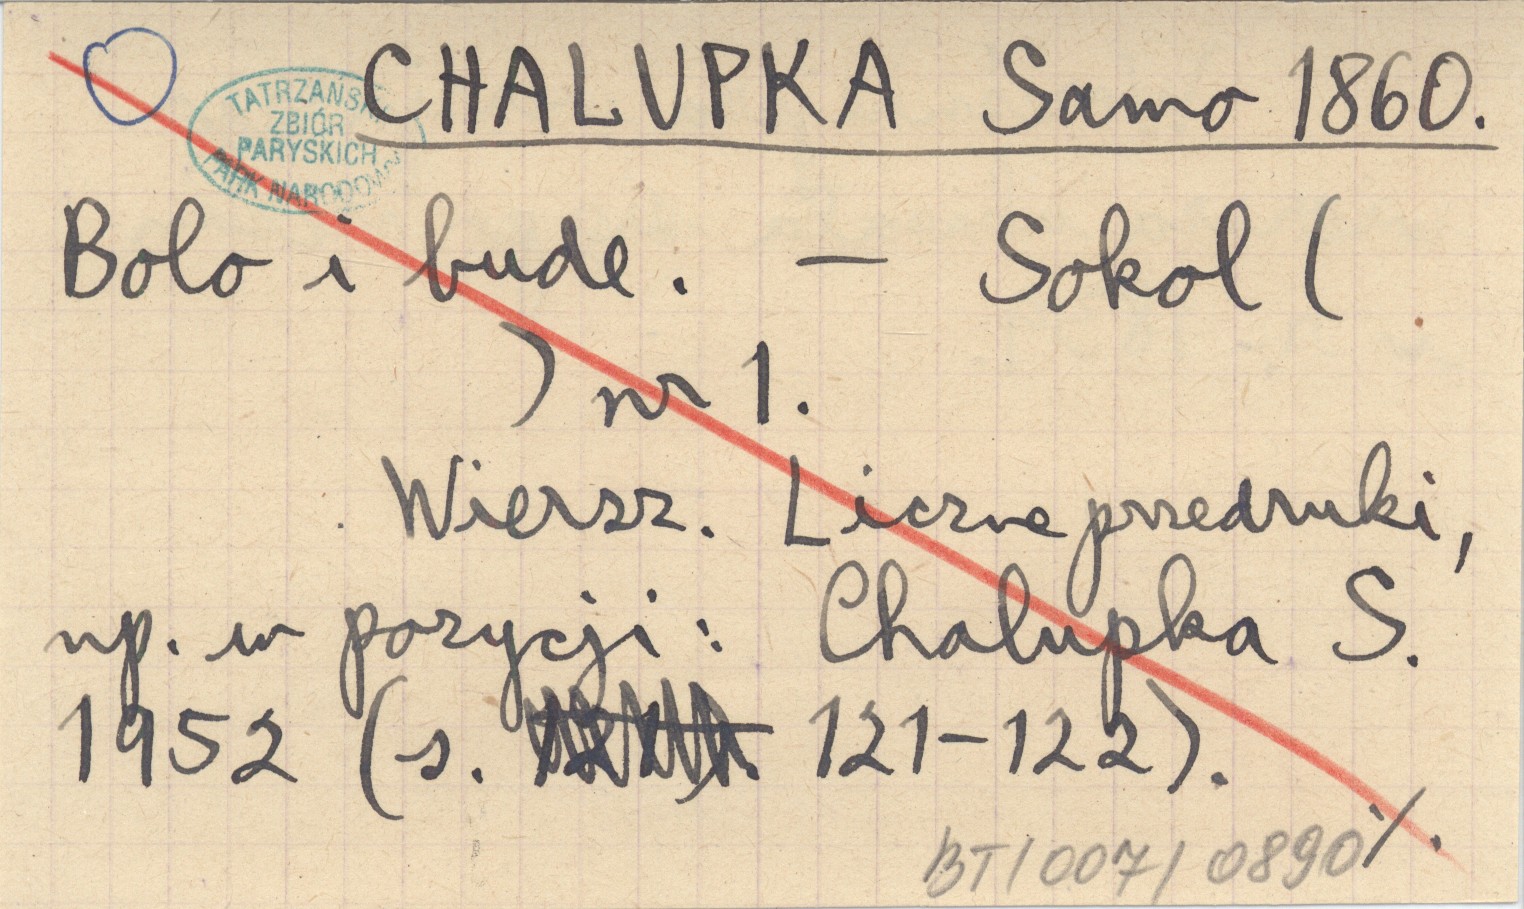 CHALUPKA Samo 1860.
TATRZAŃSKI
ZBIÓR
PARYSKICH
PARK NARODOWY
Bolo i bude. — Sokol (
) nr 1.
Wiersz. Liczne przedruki,
np. w pozycji: Chalupka S.
1952 (s. 121-122).
./.
BT/007/0890